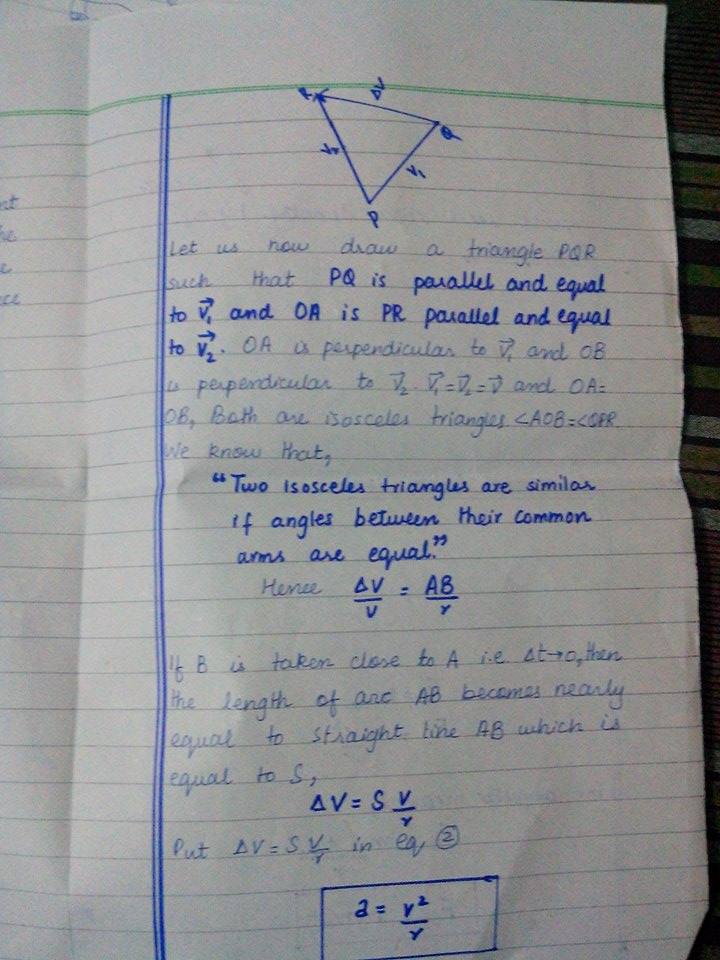 nt
he
e
ce
R
ΔV
Q
V2
V1
P
Let us now draw a triangle PQR
such that PQ is parallel and equal
to V⃗₁ and OA is PR parallel and equal
to V⃗₂. OA is perpendicular to V⃗₁ and OB
is perpendicular to V⃗₂. V⃗₁=V⃗₂=V⃗ and OA=
OB, Both are isosceles triangles ∠AOB=∠QPR.
We know that,
“Two isosceles triangles are similar
if angles between their common
arms are equal.”
Hence ΔV/V = AB/r
If B is taken close to A i.e. Δt→0, then
the length of arc AB becomes nearly
equal to straight line AB which is
equal to S,
ΔV = S V/r
Put ΔV = S V/r in eq ②
a = v²/r